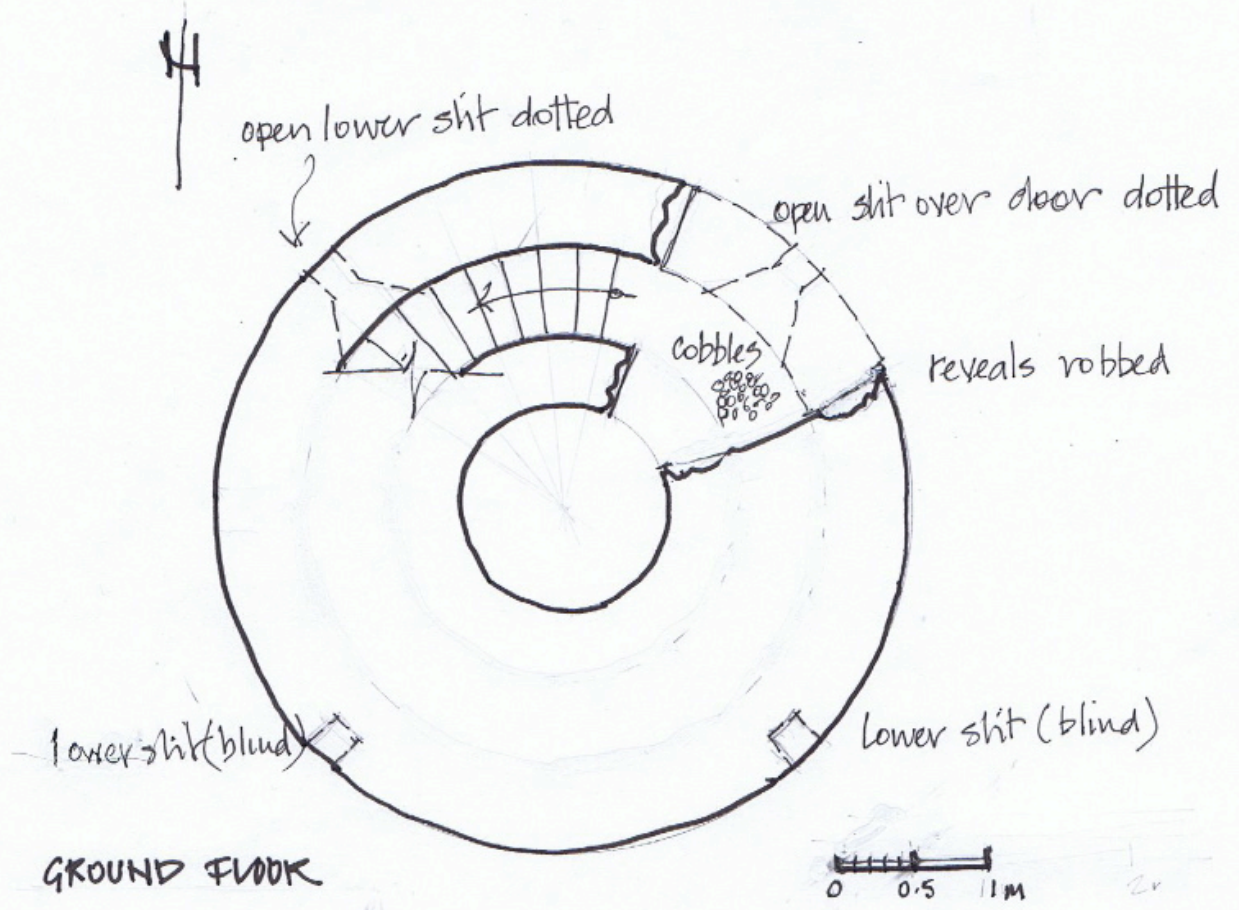 open lower slit dotted
open slit over door dotted
cobbles
reveals robbed
lower slit (blind)
lower slit (blind)
GROUND FLOOR
0 0.5 1M